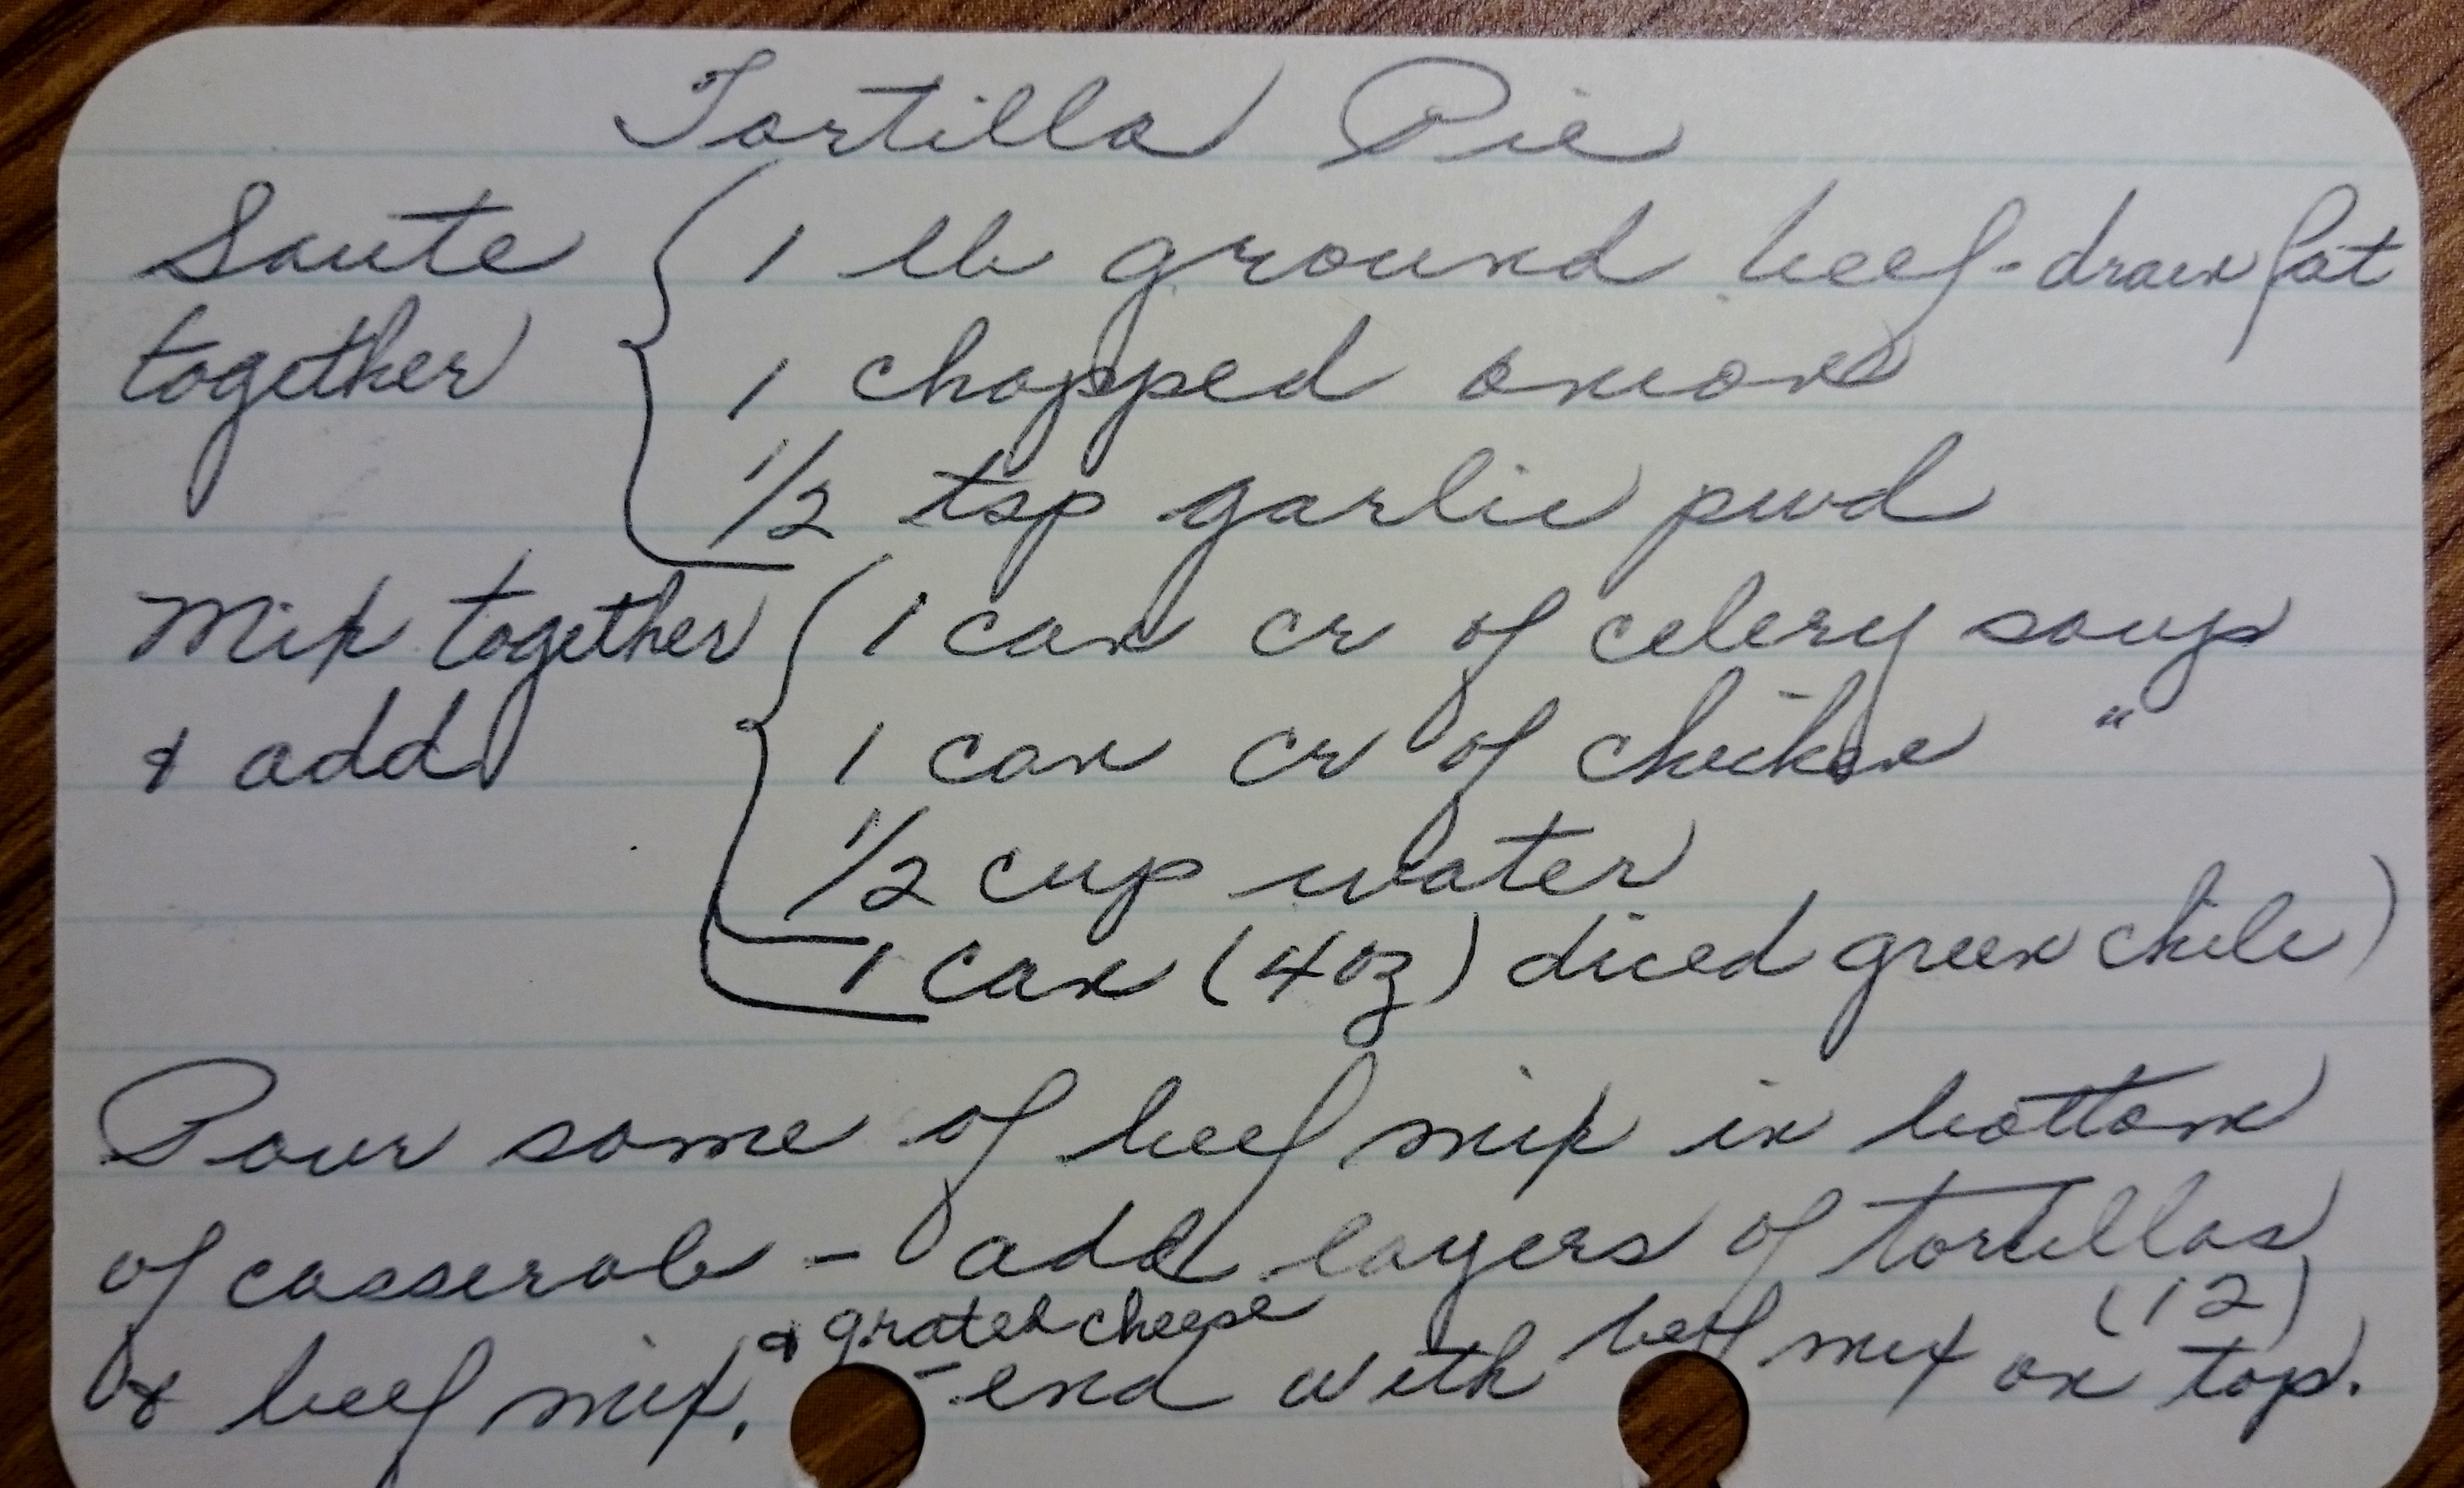 Tortilla Pie
Saute together { 1 lb ground beef - drain fat
1 chopped onion
1/2 tsp garlic pwd
Mix together & add { 1 can cr of celery soup
1 can cr of chicken "
1/2 cup water
1 can (4 oz) diced green chile)
Pour some of beef mix in bottom
of casserole - add layers of tortillas
(12)
& grated cheese
& beef mix. - end with beef mix on top.